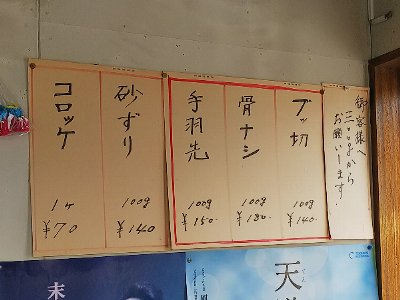 御客様へ
三〇〇gから
お願いします
ブッ切
100g
¥140.
骨ナシ
100g
¥180.
手羽先
100g
¥150.
砂ずり
100g
¥140
コロッケ
1ケ
¥70
天
末